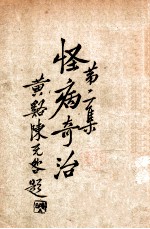 怪病奇治
第二集
黄谿陳元㪅題